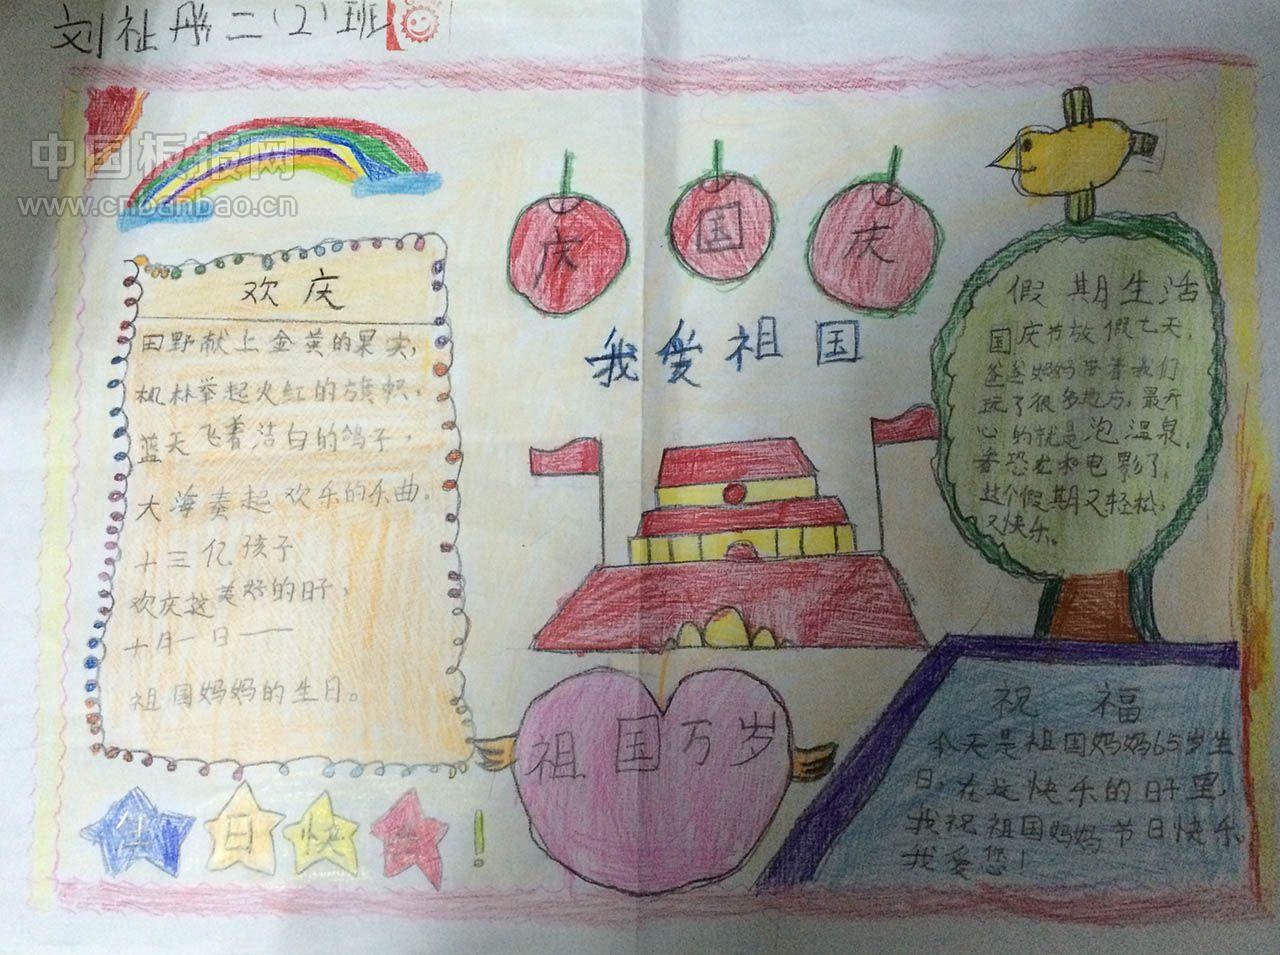 刘祉彤二(2)班
中国板报网
www.cnbanbao.cn
欢庆
田野献上金黄的果实，
机林举起火红的旗帜，
蓝天飞着洁白的鸽子，
大海奏起欢乐的乐曲。
十三亿孩子
欢庆这美好的日子，
十月一日——
祖国妈妈的生日。
生日快乐！
庆国庆
我爱祖国
祖国万岁
假期生活
国庆节放假七天，
爸爸妈妈带着我们
玩了很多地方，最开
心的就是泡温泉，
看恐龙和电影了，
这个假期又轻松，
又快乐。
祝福
今天是祖国妈妈65岁生
日，在这快乐的日子里，
我祝祖国妈妈节日快乐。
我爱您！